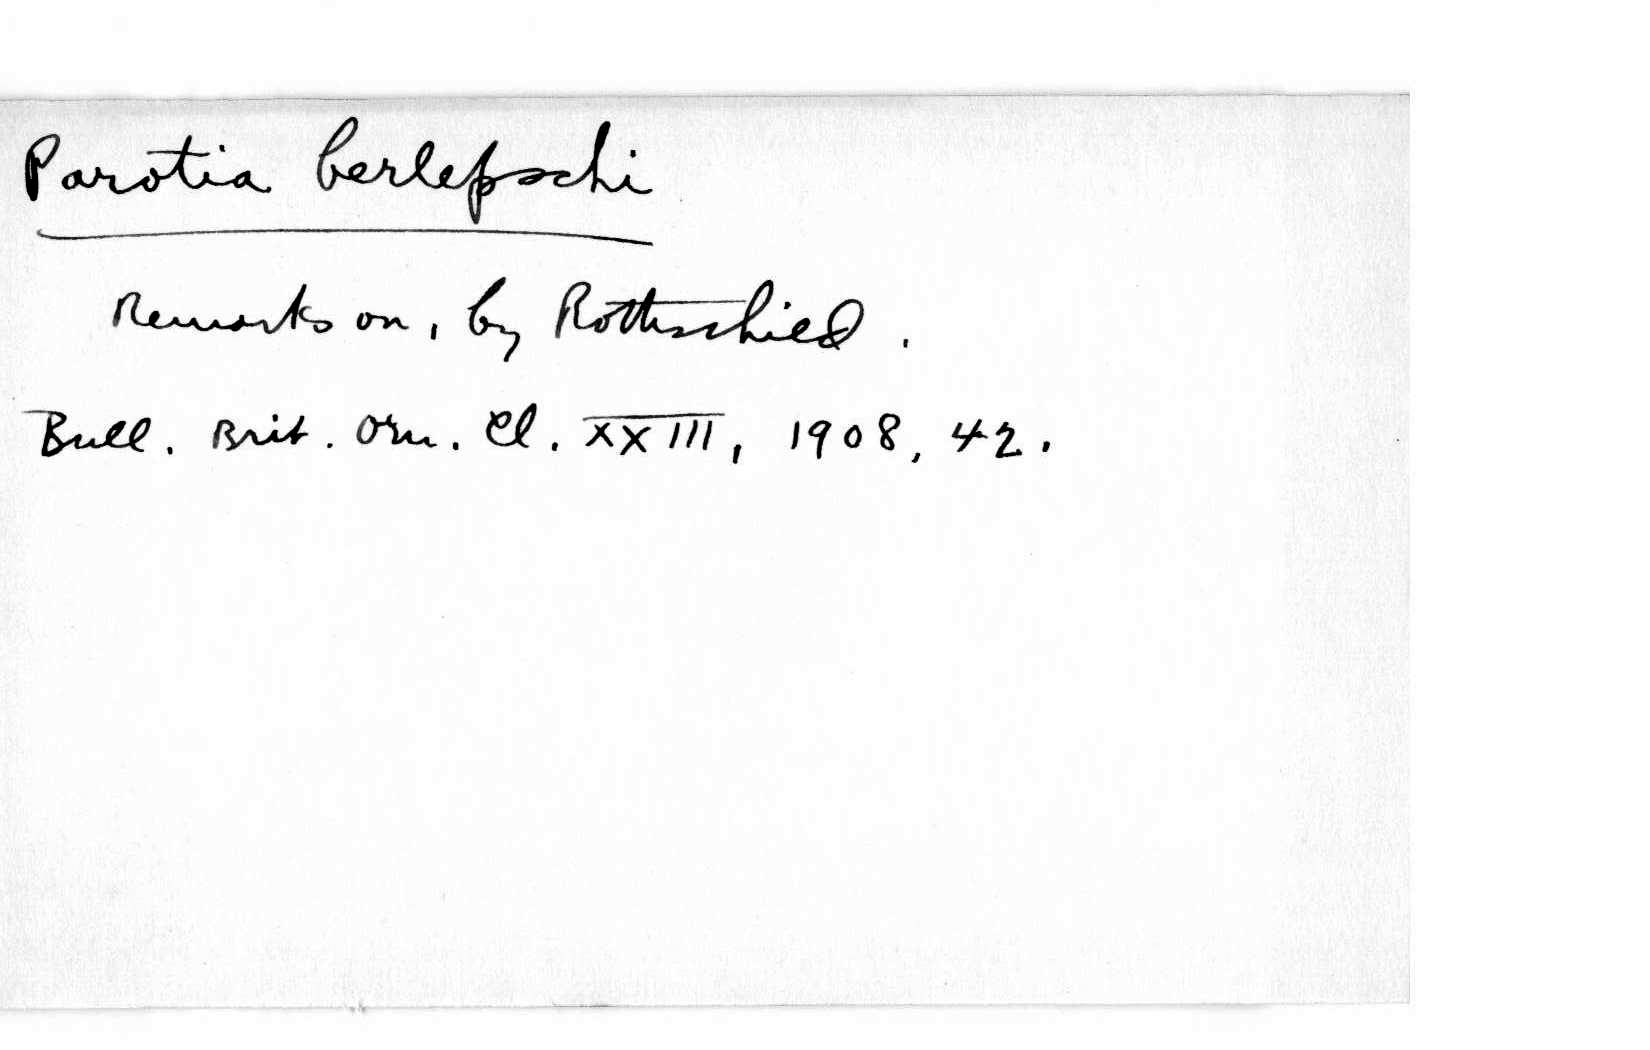 Parotia berlepschi
Remarks on, by Rothschild.
Bull. Brit. Orn. Cl. XXIII, 1908, 42.